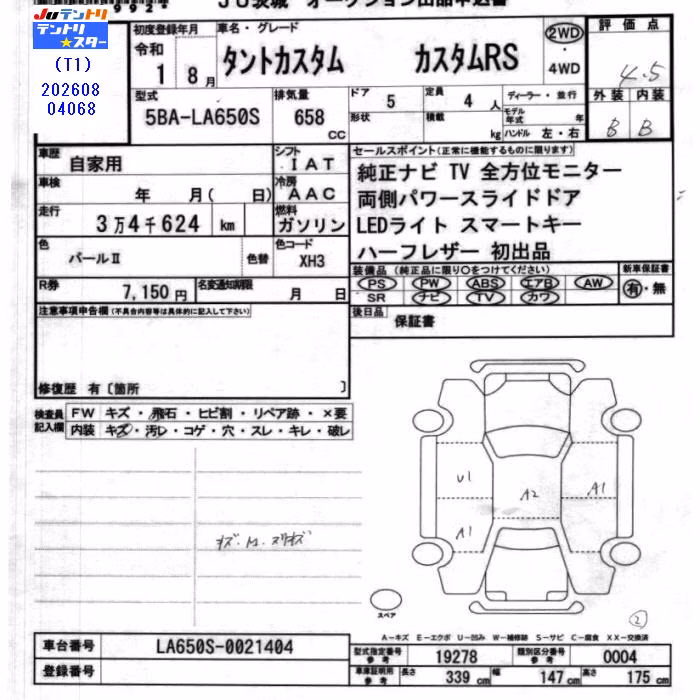 JU茨城 オークション出品申込書
JUテントリ
テントリ★スター
(T1)
202608
04068
初度登録年月
令和
1 8月
車名・グレード
タントカスタム カスタムRS
2WD
・
4WD
評価点
4.5
外装 内装
B B
型式
5BA-LA650S
排気量
658
CC
ドア
5
形状
定員
4 人
積載
kg
ディーラー・並行
モデル年式 年
ハンドル 左・右
車歴
自家用
シフト
IAT
車検
年 月( 日)
冷房
AAC
走行
3万4千624 km
燃料
ガソリン
色
パールⅡ
色替
色コード
XH3
R券
7,150円
名変通知期限
月 日
セールスポイント(正常に機能するものに限ります)
純正ナビ TV 全方位モニター
両側パワースライドドア
LEDライト スマートキー
ハーフレザー 初出品
装備品(純正品に限り○をつけてください)
PS PW ABS エアB AW
SR ナビ TV カワ
新車保証書
有・無
後日品
保証書
注意事項申告欄(不具合内容等は具体的に記入して下さい)
修復歴 有〔箇所 〕
検査員
記入欄
FW キズ・飛石・ヒビ割・リペア跡・×要
内装 キズ・汚レ・コゲ・穴・スレ・キレ・破レ
U1
A1
A2
A1
スペア
2
A－キズ E－エクボ U－凹み W－補修跡 S－サビ C－腐食 XX－交換済
車台番号
LA650S-0021404
登録番号
型式指定番号
参考
19278
類別区分番号
参考
0004
車庫証明用
参考
長さ
339 cm
幅
147 cm
高さ
175 cm